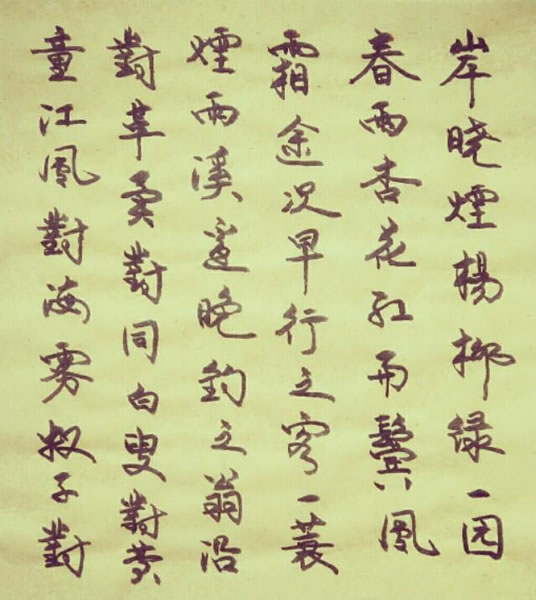 岸晓煙楊柳绿一园
春雨杏花红两鬢風
霜途次早行之客一蓑
煙雨溪邊晚釣之翁沿
對革異對同白叟對黄
童江風對海雾牧子對